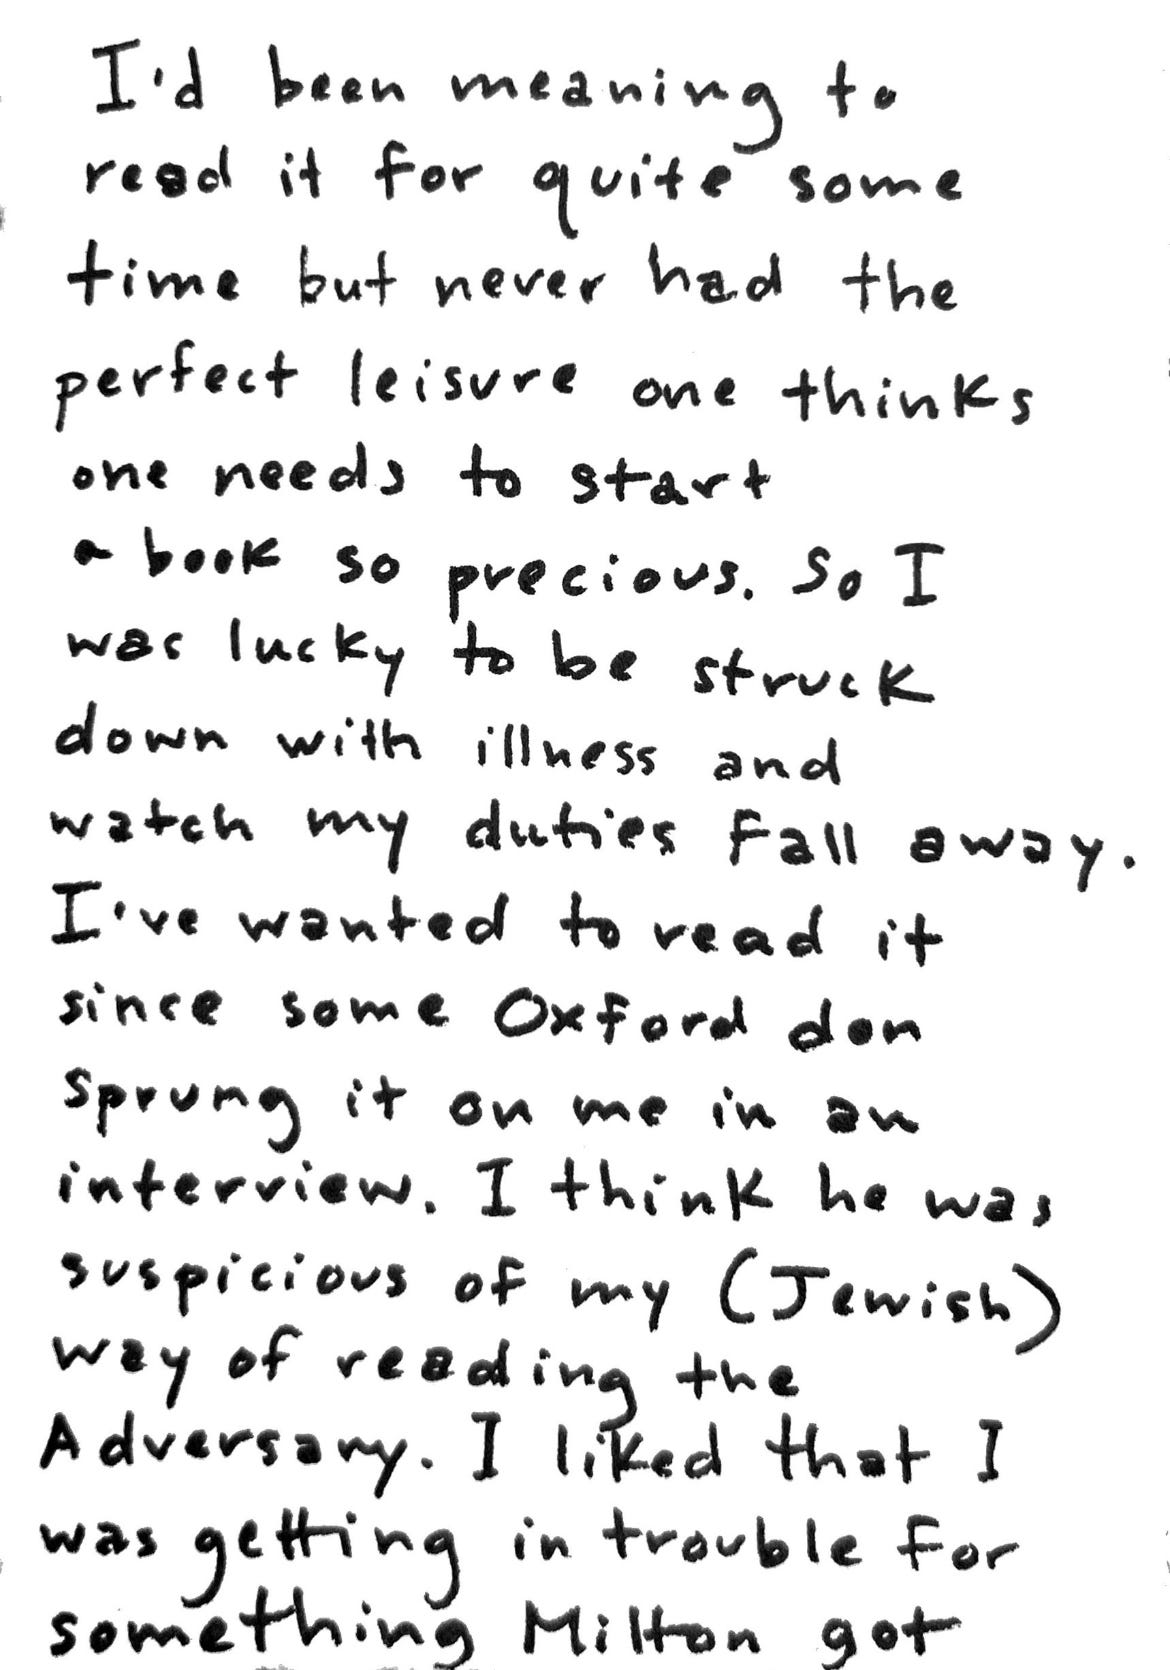 I'd been meaning to
read it for quite some
time but never had the
perfect leisure one thinks
one needs to start
a book so precious. So I
was lucky to be struck
down with illness and
watch my duties fall away.
I've wanted to read it
since some Oxford don
sprung it on me in an
interview. I think he was
suspicious of my (Jewish)
way of reading the
Adversary. I liked that I
was getting in trouble for
something Milton got